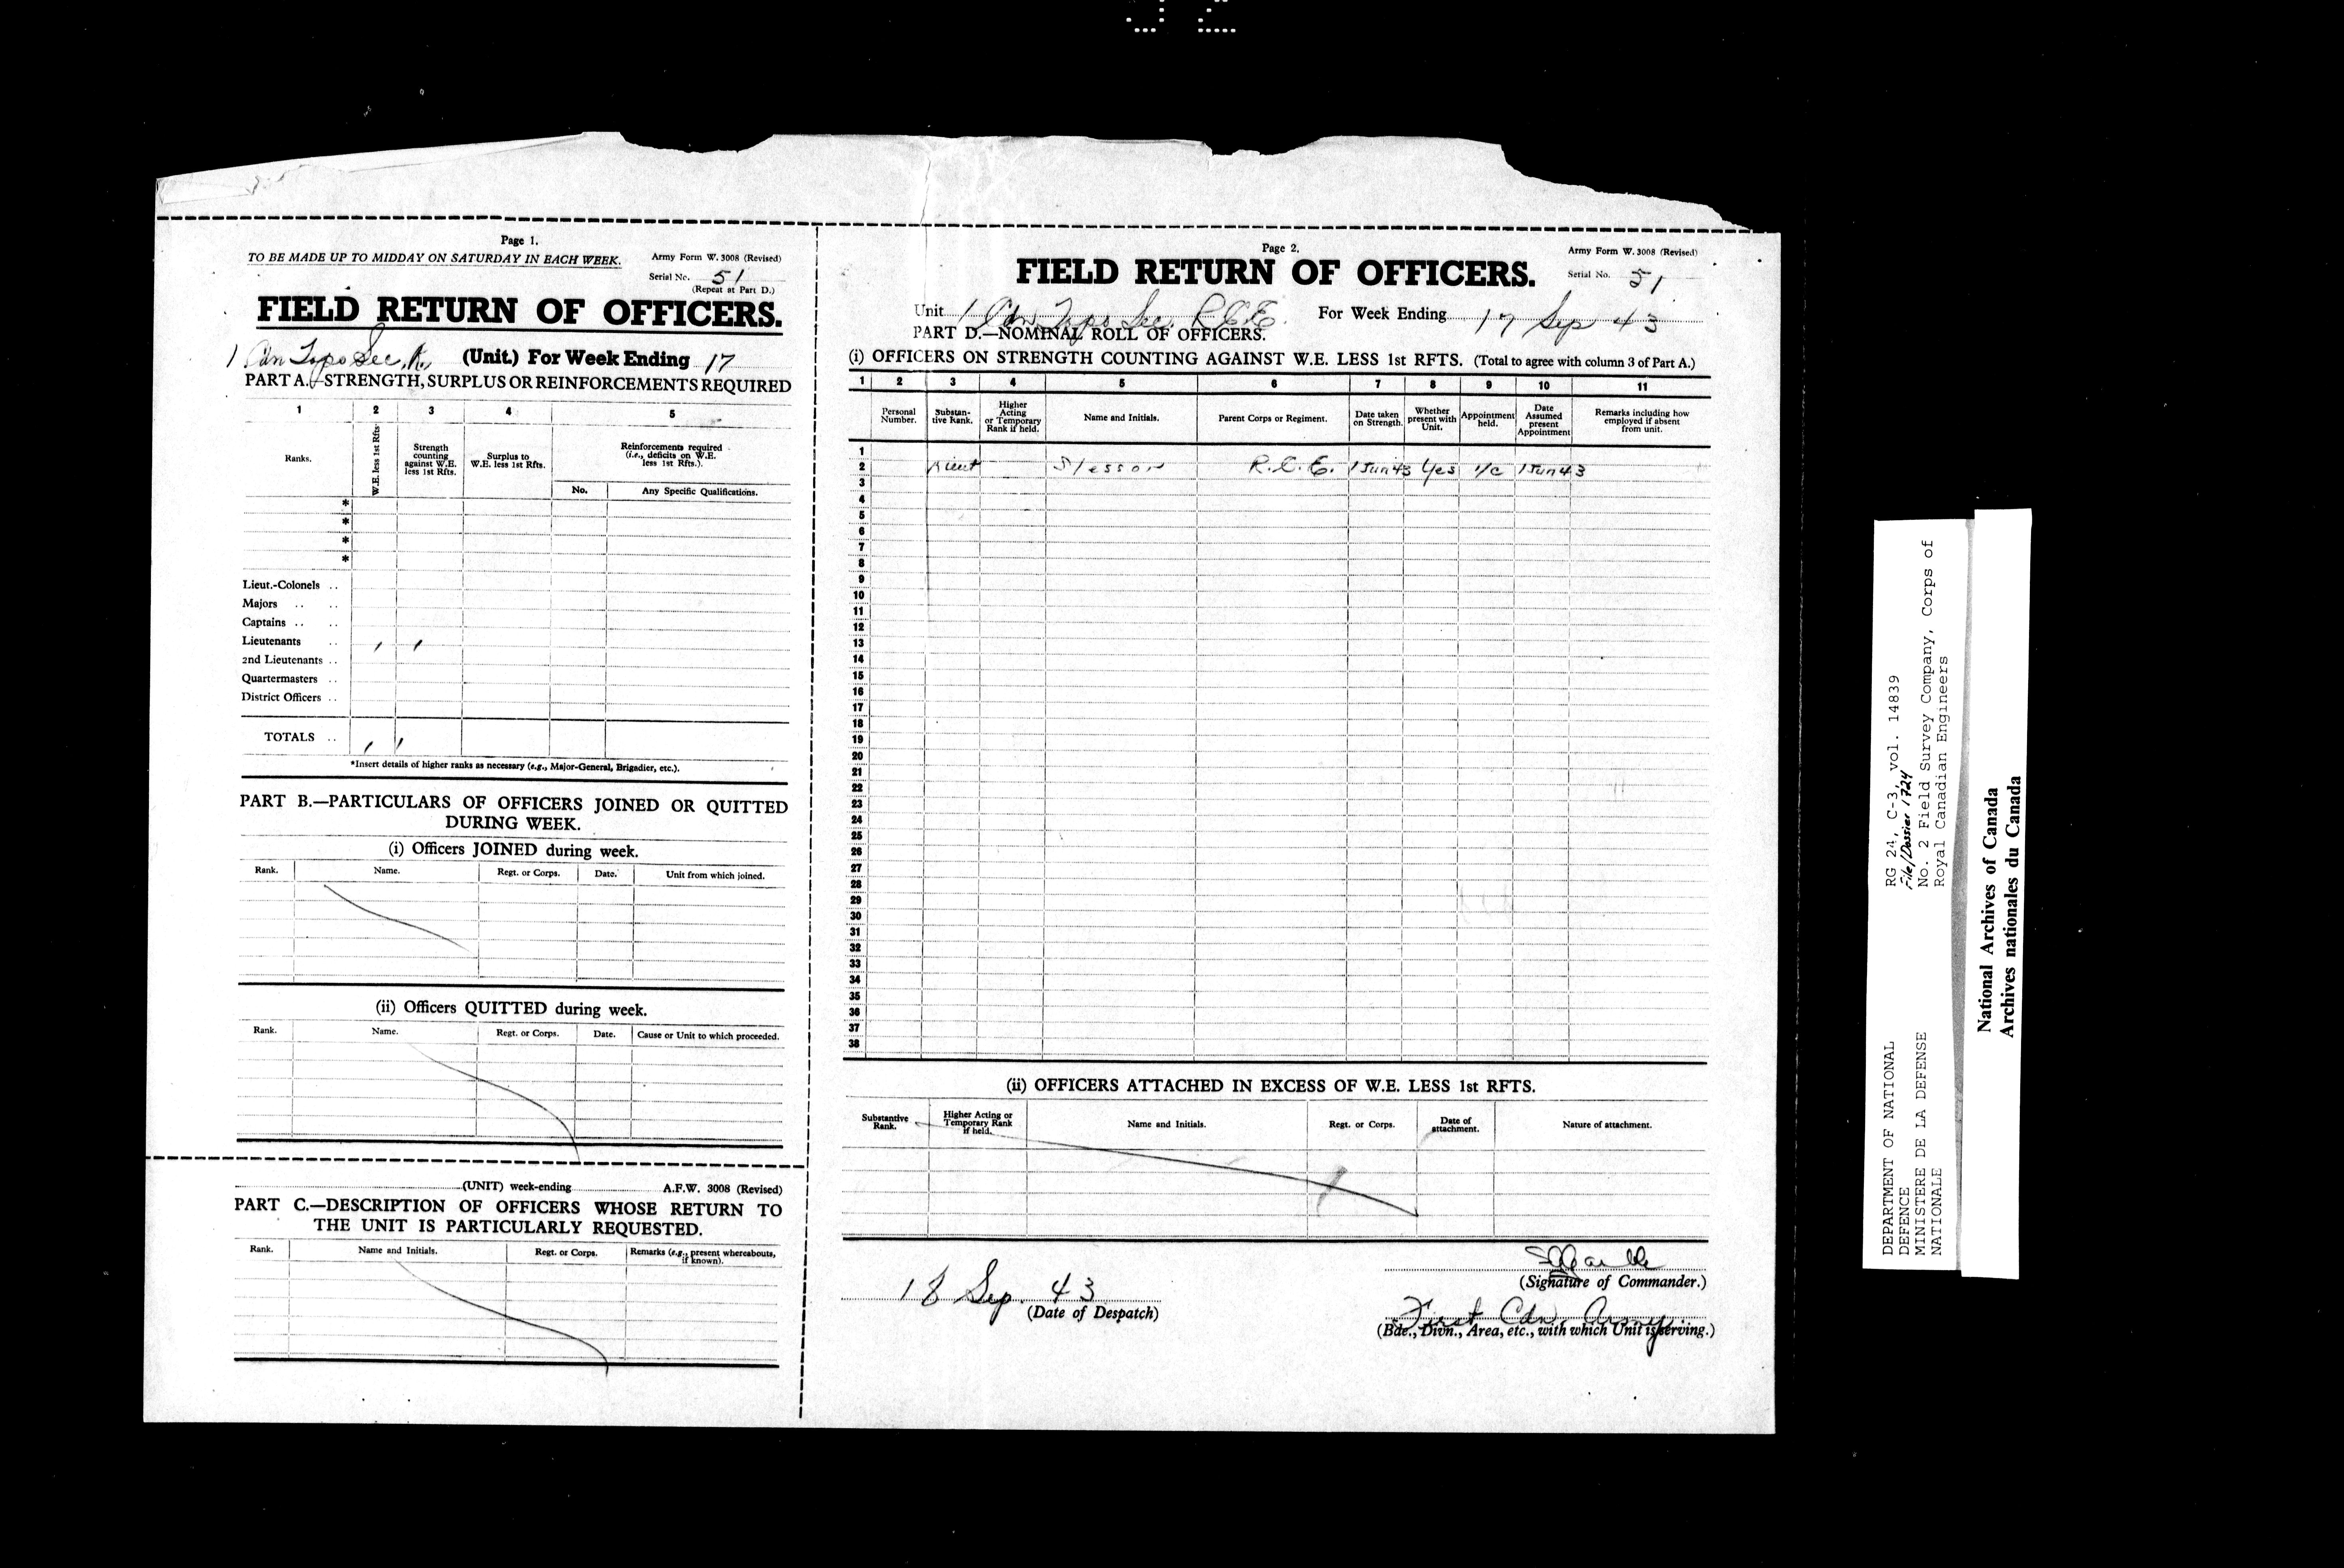 Page 1.
TO BE MADE UP TO MIDDAY ON SATURDAY IN EACH WEEK.
Army Form W. 3008 (Revised)
Serial No. 51
(Repeat at Part D.)
FIELD RETURN OF OFFICERS.
1 Cdn Topo Sec, R. (Unit.) For Week Ending 17
PART A.—STRENGTH, SURPLUS OR REINFORCEMENTS REQUIRED
1 2 3 4 5
Ranks.
W.E. less 1st Rfts.
Strength counting against W.E. less 1st Rfts.
Surplus to W.E. less 1st Rfts.
Reinforcements required (i.e., deficits on W.E. less 1st Rfts.).
No.
Any Specific Qualifications.
*
*
*
*
Lieut.-Colonels ..
Majors .. ..
Captains .. ..
Lieutenants .. 1 1
2nd Lieutenants ..
Quartermasters ..
District Officers ..
TOTALS .. 1 1
*Insert details of higher ranks as necessary (e.g., Major-General, Brigadier, etc.).
PART B.—PARTICULARS OF OFFICERS JOINED OR QUITTED
DURING WEEK.
(i) Officers JOINED during week.
Rank. Name. Regt. or Corps. Date. Unit from which joined.
(ii) Officers QUITTED during week.
Rank. Name. Regt. or Corps. Date. Cause or Unit to which proceeded.
(UNIT) week-ending A.F.W. 3008 (Revised)
PART C.—DESCRIPTION OF OFFICERS WHOSE RETURN TO
THE UNIT IS PARTICULARLY REQUESTED.
Rank. Name and Initials. Regt. or Corps. Remarks (e.g., present whereabouts, if known).
Page 2.
Army Form W. 3008 (Revised)
FIELD RETURN OF OFFICERS.
Serial No. 51
Unit 1 Cdn Topo Sec. R.C.E. For Week Ending 17 Sep 43
PART D.—NOMINAL ROLL OF OFFICERS.
(i) OFFICERS ON STRENGTH COUNTING AGAINST W.E. LESS 1st RFTS. (Total to agree with column 3 of Part A.)
1 2 3 4 5 6 7 8 9 10 11
Personal Number.
Substantive Rank.
Higher Acting or Temporary Rank if held.
Name and Initials.
Parent Corps or Regiment.
Date taken on Strength.
Whether present with Unit.
Appointment held.
Date Assumed present Appointment
Remarks including how employed if absent from unit.
1
2 Lieut Slessor R.C.E. 1 Jun 43 Yes i/c 1 Jun 43
3
4
5
6
7
8
9
10
11
12
13
14
15
16
17
18
19
20
21
22
23
24
25
26
27
28
29
30
31
32
33
34
35
36
37
38
(ii) OFFICERS ATTACHED IN EXCESS OF W.E. LESS 1st RFTS.
Substantive Rank.
Higher Acting or Temporary Rank if held.
Name and Initials.
Regt. or Corps.
Date of attachment.
Nature of attachment.
(Signature of Commander.)
18 Sep. 43
(Date of Despatch)
First Cdn Army
(Bde., Divn., Area, etc., with which Unit is serving.)
DEPARTMENT OF NATIONAL
DEFENCE
MINISTERE DE LA DEFENSE
NATIONALE
RG 24, C-3, vol. 14839
File/Dossier 1724
No. 2 Field Survey Company, Corps of
Royal Canadian Engineers
National Archives of Canada
Archives nationales du Canada